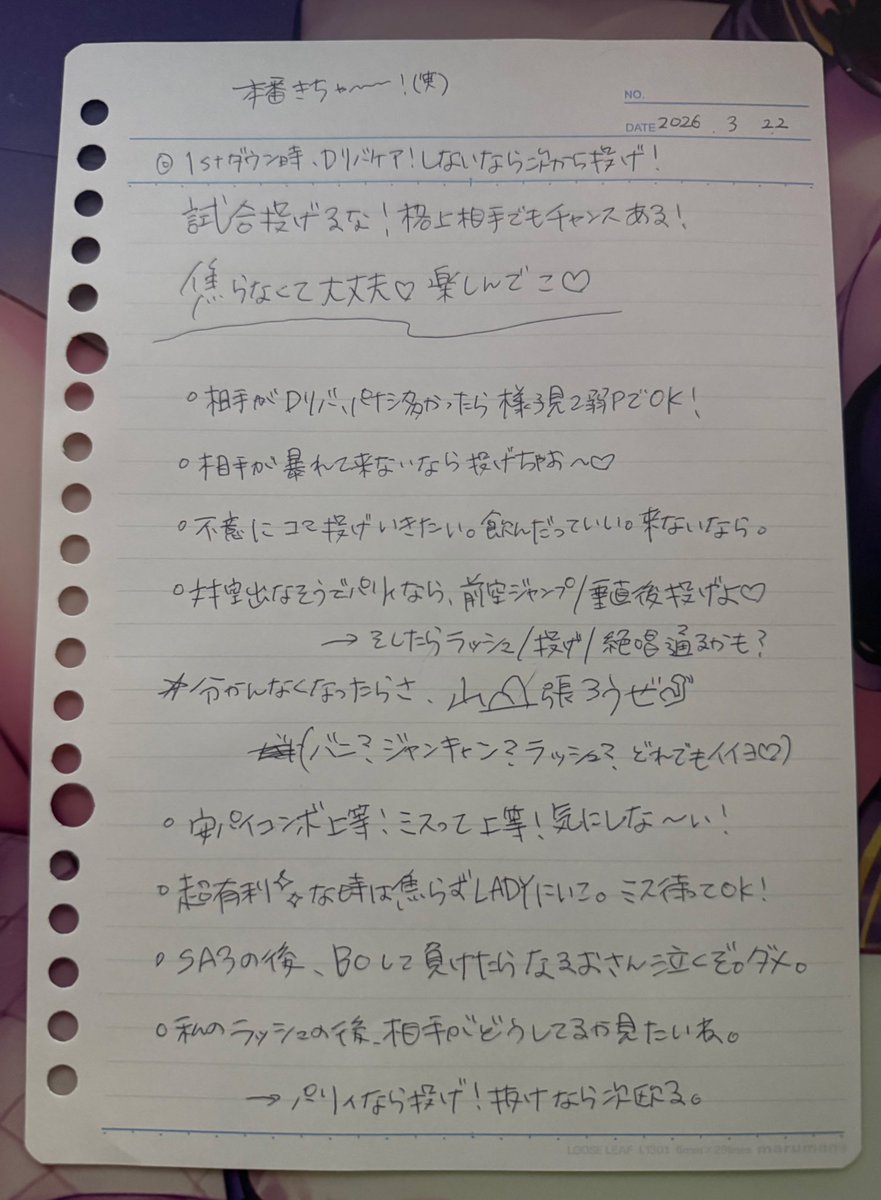 本番きちゃ〜〜!(実)
NO.
DATE 2026 . 3 22
◎1stダウン時、Dリバケア!しないなら次から投げ!
試合投げるな!格上相手でもチャンスある!
焦らなくて大丈夫♡楽しんでこ♡
○相手がDリバ、パナシ多かったら様子見2弱PでOK!
○相手が暴れて来ないなら投げちゃお〜♡
○不意にコマ投げいきたい。飲んだっていい。来ないなら。
○対空出なそうでパリィなら、前空ジャンプ/垂直後投げよ♡
→そしたらラッシュ/投げ/絶唱通るかも?
※分かんなくなったらさ、山張ろうぜ
(バニ?ジャンキャン?ラッシュ?、どれでもイイヨ♡)
○安パイコンボ上等!ミスって上等!気にしな〜い!
○超有利な時は焦らずLADYにいこ。ミス待ってOK!
○SA3の後、BOして負けたらなるおさん泣くぞ。ダメ。
○私のラッシュの後、相手がどうしてるか見たいね。
→パリィなら投げ!抜けなら次殴る。
LOOSE LEAF L1301 6mm×29lines maruman